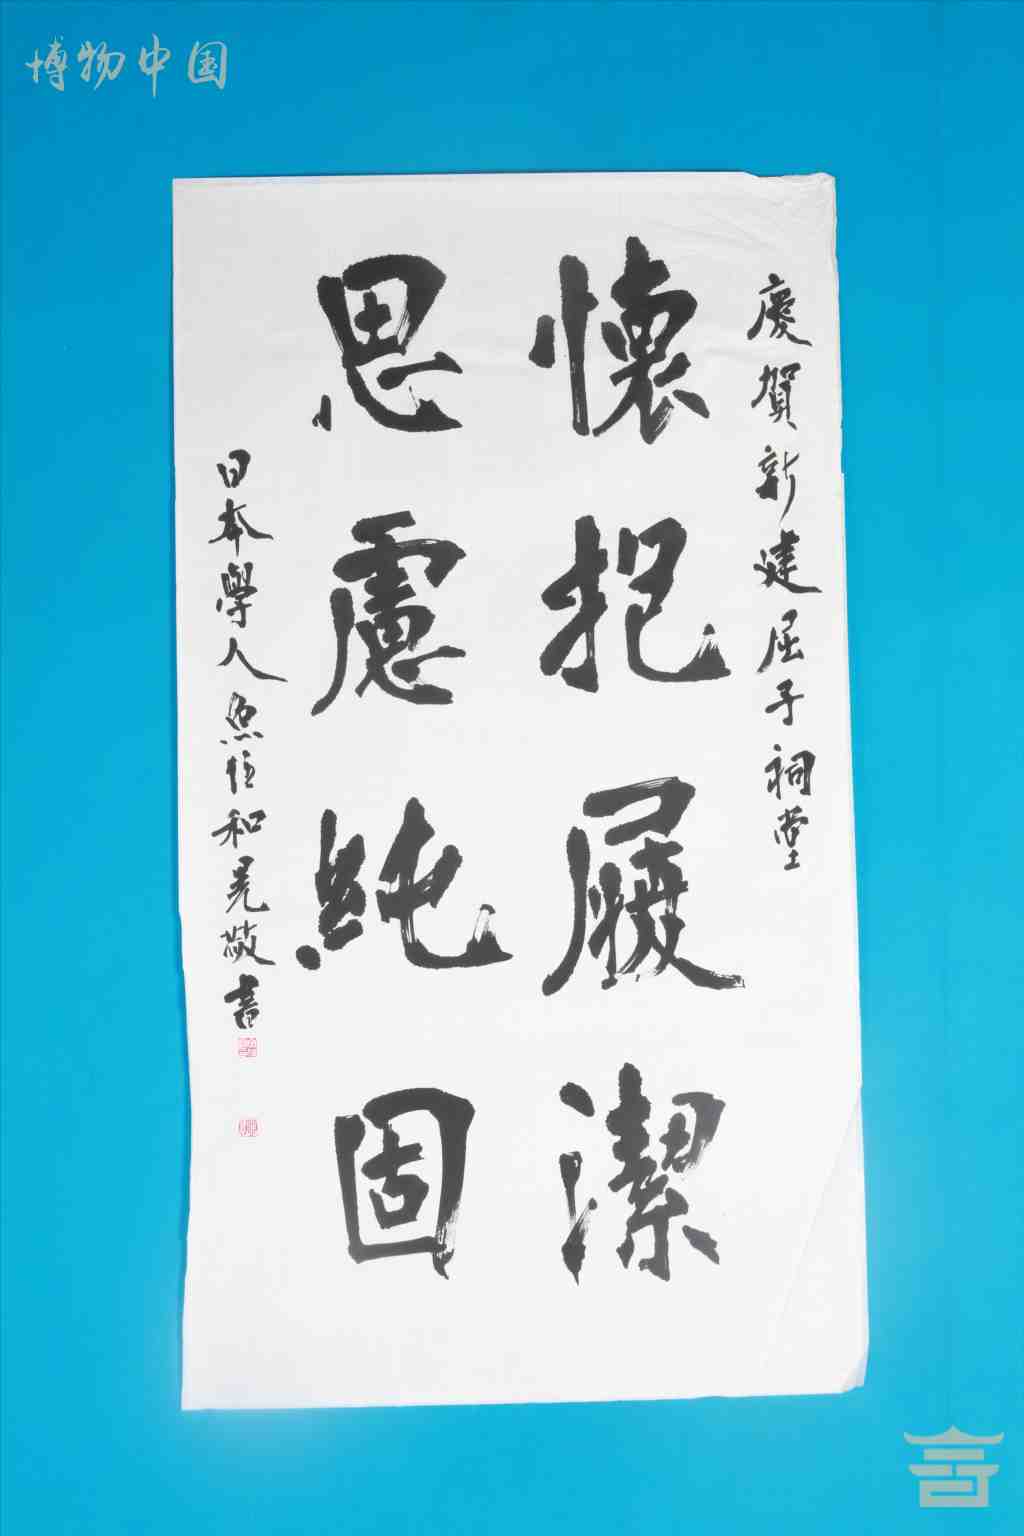 博物中国
慶賀新建屈子祠堂
懷抱履潔
思慮純固
日本學人魚住和晃敬書